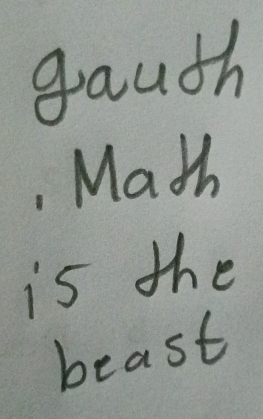 gauth
. Math
is the
beast